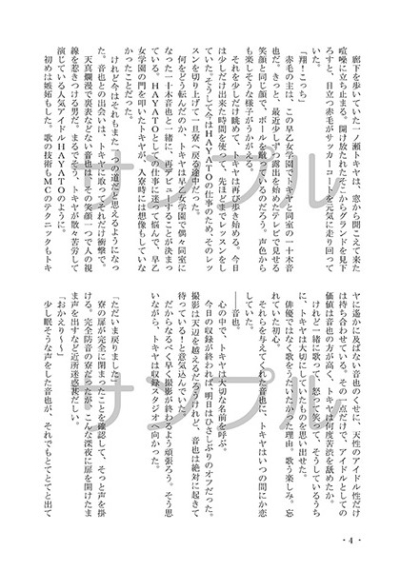 廊下を歩いていた一ノ瀬トキヤは、窓から聞こえて来た
喧噪に立ち止まる。開け放たれたそこからグランドを見下
ろすと、目立つ赤毛がサッカーコートを元気に走り回って
いた。
「翔!こっち」
赤毛の主は、この早乙女学園でトキヤと同室の一十木音
也だ。きっと、最近少しずつ露出を始めたテレビで見せる
笑顔と同じ顔で、ボールを蹴っているのだろう。声色から
も楽しそうな様子がうかがえる。
それを少しだけ眺めて、トキヤは再び歩き始める。今日
は少しだけ出来た時間を使って、先ほどまでレッスンをし
ていた。そうして今はHAYATOの仕事のため、そのレッ
スンを切り上げて一旦寮へ戻る途中だった。
何をどう
なった一十木音也と一緒に、デビューすることが決まっ
ている。HAYATOとしての仕事に迷って悩んで、早乙
女学園の門を叩いたトキヤが、入寮時には想像もしていな
かったことだった。
けれど今はそれもまた一つの道だと思えるようになっ
た。音也との出会いは、トキヤに取ってそれだけ衝撃で。
天真爛漫で裏表などない音也は、その笑顔一つで人の視
線を惹きつける男だ。まるでそう、トキヤが散々苦労して
演じている人気アイドルHAYATOのように。
初めは嫉妬もした。歌の技術もMCのテクニックもトキ
ヤに遥かに及ばない音也のくせに、天性のアイドル性だけ
は持ち合わせている。その一点だけで、アイドルとしての
価値は音也の方が高く、トキヤは何度苦渋を舐めたか。
けれど一緒に歌って、怒って笑って、そうしているうち
に、トキヤは大切にしていたものを思い出せた。
俳優ではなく歌をうたいたかった理由。歌う楽しみ。忘
れていた初心。
それらを与えてくれた音也に、トキヤはいつの間にか恋
していた。
――音也。
心の中で、トキヤは大切な名前を呼ぶ。
今日の収録が終われば、明日はひさしぶりのオフだった。
撮影は天辺を越えるだろうけれど、音也は絶対に起きて
待っている!と意気込んでいた。
だからなるべく早く撮影が終わるよう頑張ろう。そう思
いながら、トキヤは収録スタジオへ向かった。
「ただいま戻りました」
寮の扉が完全に閉まったことを確認して、そっと声を掛
ける。完全防音の寮だったが、こんな深夜に扉を開けたま
ま声を出すなど近所迷惑甚だしい。
「おかえり〜」
少し眠そうな声をした音也が、それでもとてとてと出て
・4・
サンプル
サンプル